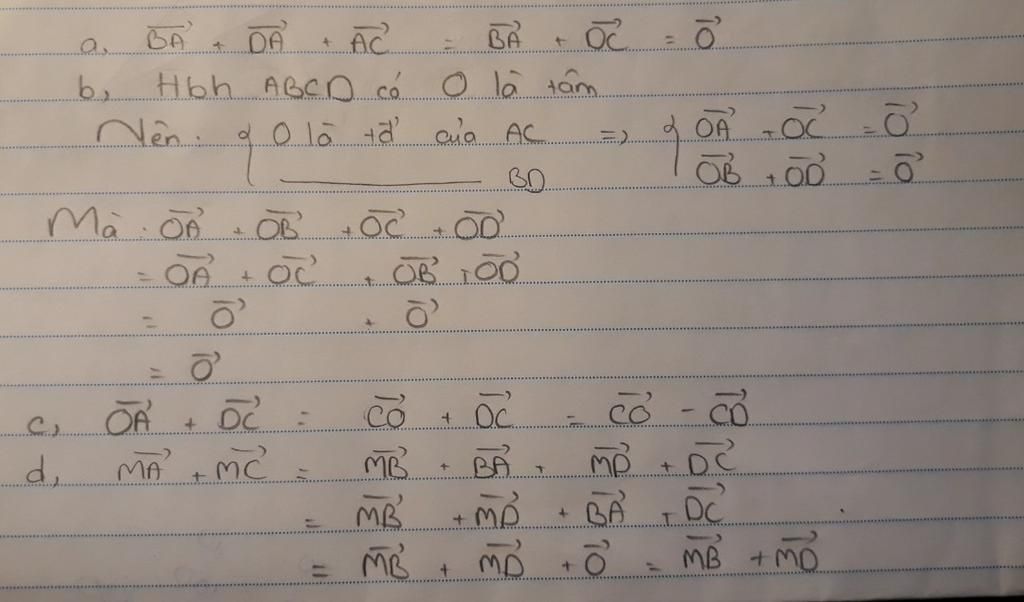 a, BA⃗ + DA⃗ + AC⃗ = BA⃗ + DC⃗ = O⃗
b, Hbh ABCD có O là tâm
Nên. { O là tđ của AC => { OA⃗ + OC⃗ = O⃗
——— BD OB⃗ + OD⃗ = O⃗
Mà. OA⃗ + OB⃗ + OC⃗ + OD⃗
= OA⃗ + OC⃗ + OB⃗ + OD⃗
= O⃗ + O⃗
= O⃗
c, OA⃗ + DC⃗ = CO⃗ + DC⃗ = CO⃗ - CD⃗
d, MA⃗ + MC⃗ = MB⃗ + BA⃗ + MD⃗ + DC⃗
= MB⃗ + MD⃗ + BA⃗ + DC⃗
= MB⃗ + MD⃗ + O⃗ = MB⃗ + MD⃗